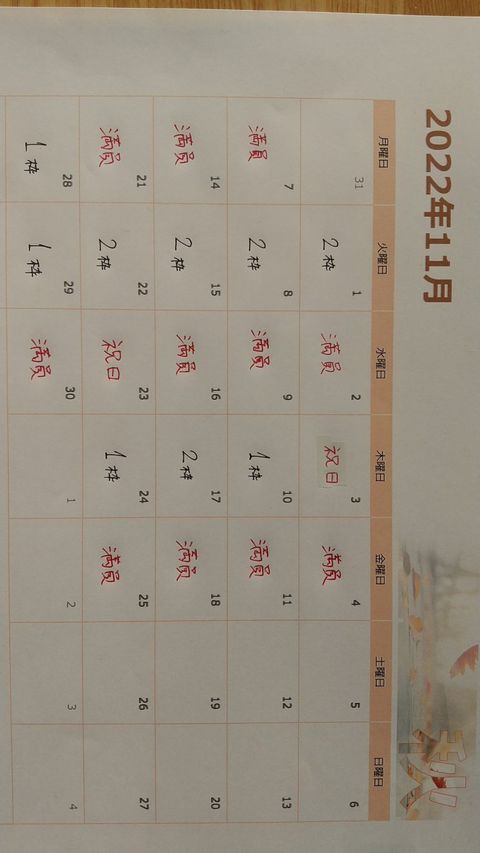 2022年11月
秋
月曜日 火曜日 水曜日 木曜日 金曜日 土曜日 日曜日
31 1 2 3 4 5 6
2枠 満員 祝日 満員
7 8 9 10 11 12 13
満員 2枠 満員 1枠 満員
14 15 16 17 18 19 20
満員 2枠 満員 2枠 満員
21 22 23 24 25 26 27
満員 2枠 祝日 1枠 満員
28 29 30 1 2 3 4
1枠 1枠 満員